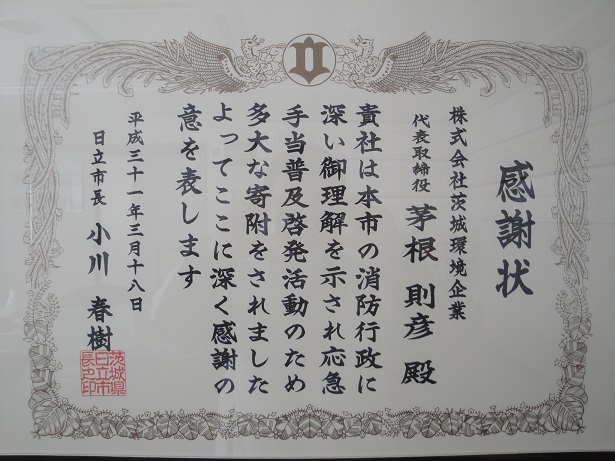 感謝状
株式会社茨城環境企業
代表取締役 茅根 則彦 殿
貴社は本市の消防行政に
深い御理解を示され応急
手当普及啓発活動のため
多大な寄附をされました
よってここに深く感謝の
意を表します
平成三十一年三月十八日
日立市長 小川 春樹
茨城県
日立市
長之印